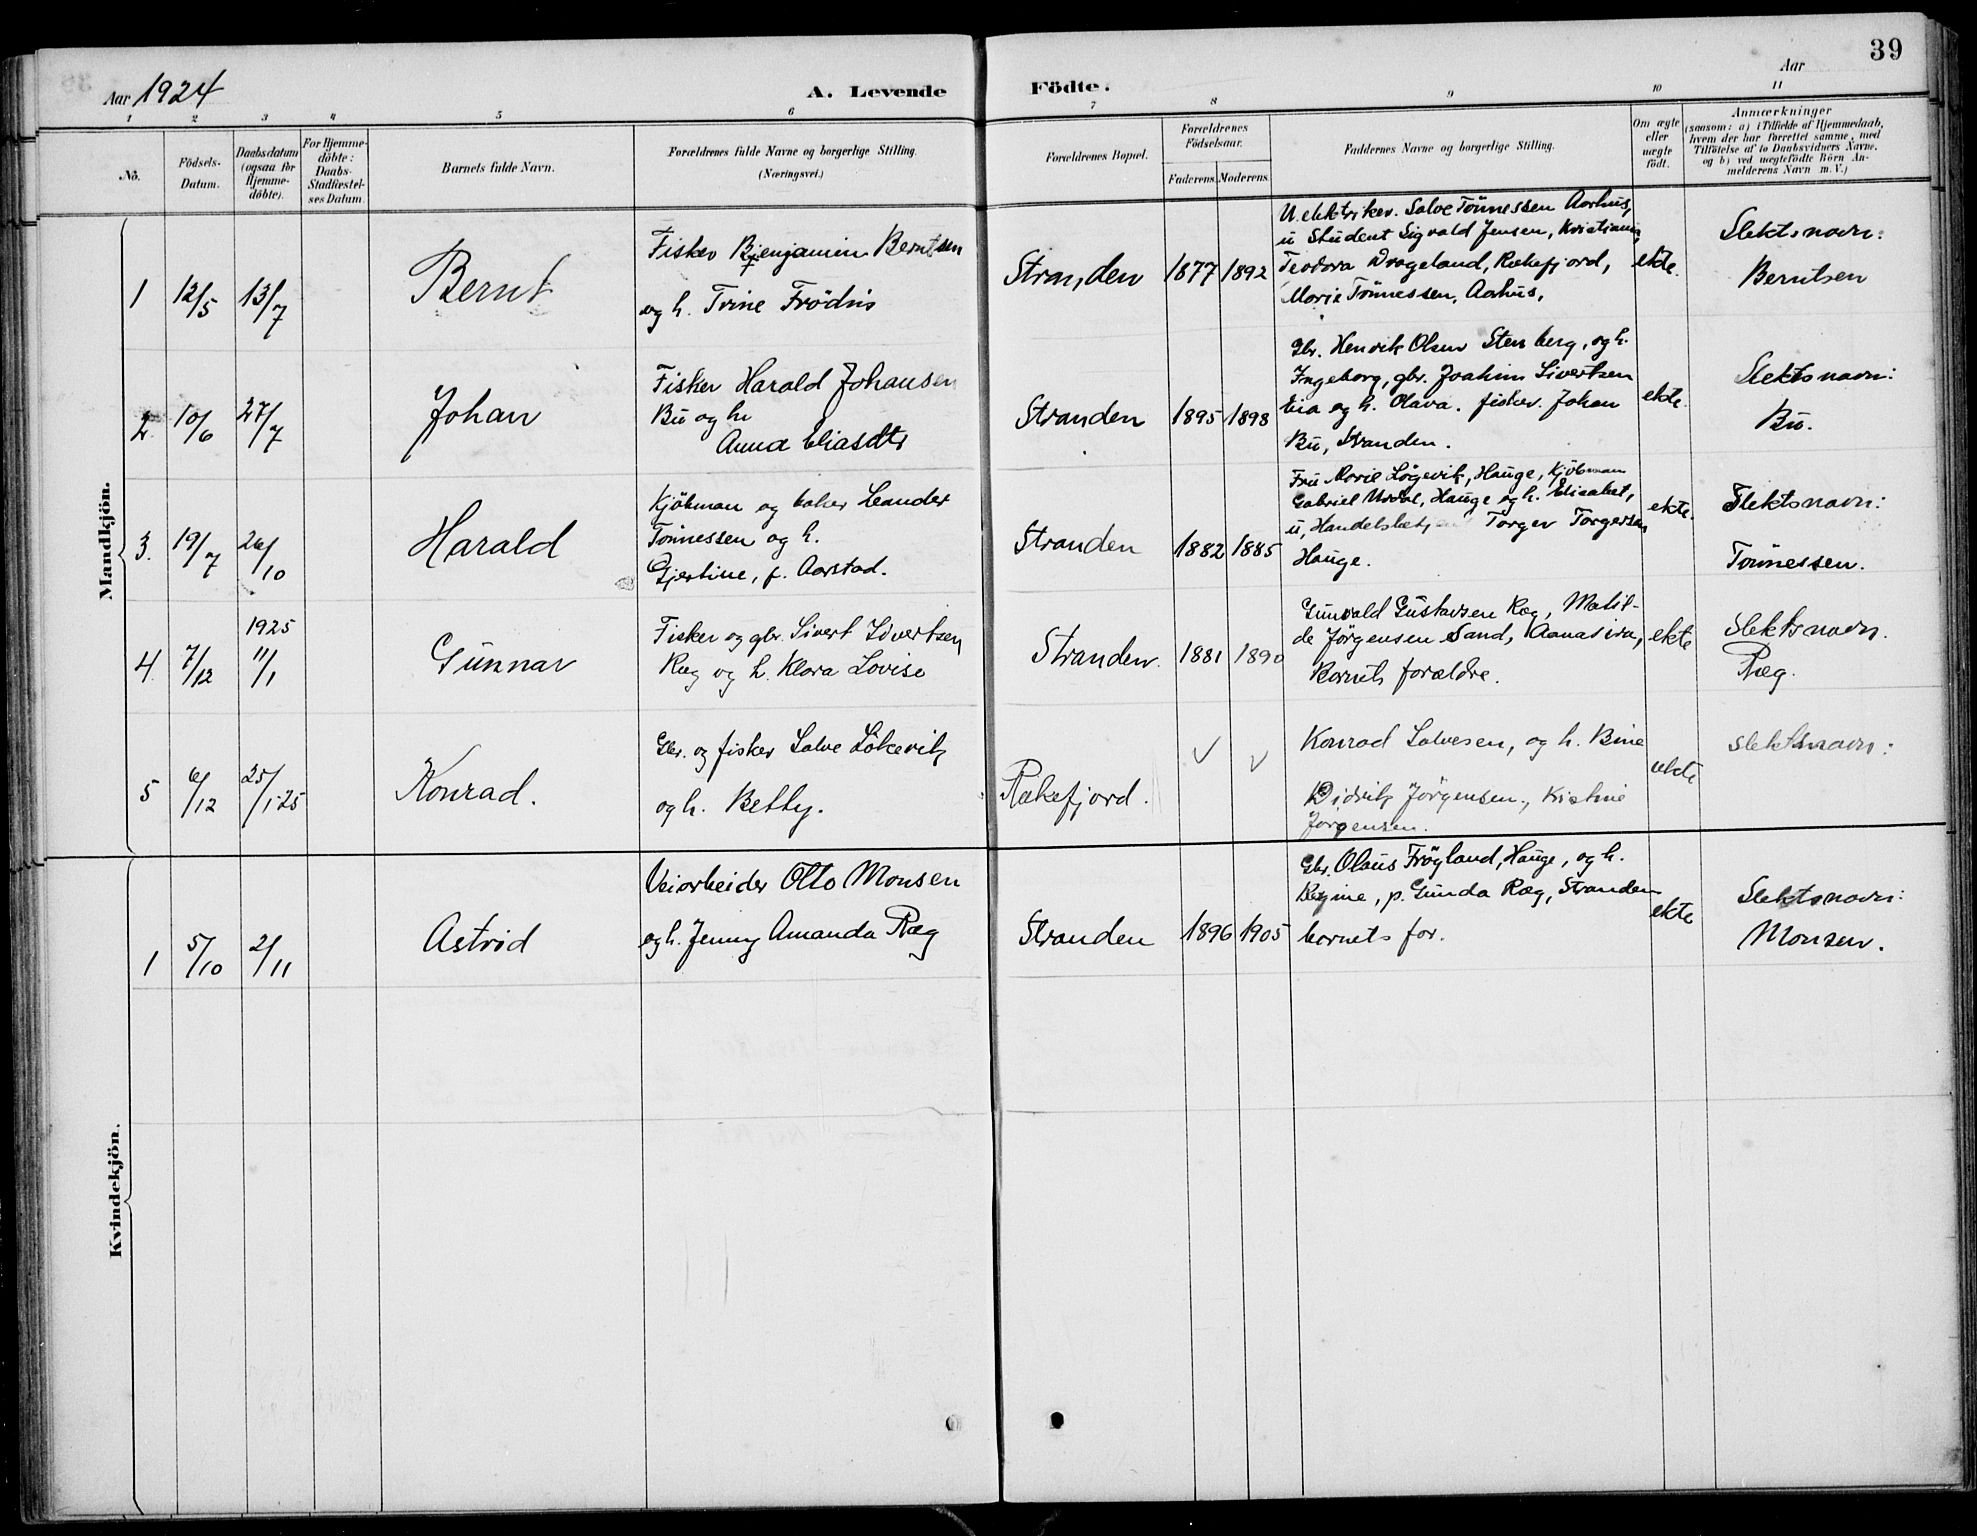 39
Aar 1924
A. Levende Födte.
Aar
1 2 3 4 5 6 7 8 9 10 11
No.
Födsels-
Datum.
Daabsdatum
(ogsaa for
Hjemme-
døbte).
For Hjemme-
döbte:
Daabs-
Stadfæstel-
ses Datum.
Barnets fulde Navn.
Forældrenes fulde Navne og borgerlige Stilling.
(Næringsvei.)
Forældrenes Bopæl.
Forældrenes
Födselsaar.
Faderens. Moderens.
Faddernes Navne og borgerlige Stilling.
Om ægte
eller
uægte
födt.
Anmærkninger
(saasom: a) i Tilfælde af Hjemmedaab,
hvem der har forrettet samme, med
Tilföielse af to Daabsvidners Navne,
og b) ved uægtefödte Börn An-
melderens Navn m. V.)
Mandkjön.
1 12/5 13/7 Bernt
Fisker Benjamin Berntsen
og h. Trine Frödis
Stranden 1877 1892
U. elektriker. Salve Tönnessen Aarhus,
u Student Sigvald Jensen, Kristiania,
Teodora Drageland, Rækefjord,
Marie Tönnessen, Aarhus,
ekte.
Slektsnavn:
Berntsen
2. 10/6 27/7 Johan
Fisker Harald Johansen
Bu og hu
Anna Eliasdtr
Stranden 1895 1898
Gbr. Henrik Olsen Stenberg, og h.
Ingeborg, gbr. Joachim Sivertsen
Eia og h. Olava. fisker. Johan
Bu, Stranden.
ekte.
Slektsnavn:
Bu.
3. 19/7 26/10 Harald
Kjöbman og baker Leander
Tönnessen og h.
Gjertine, f. Aarstad.
Stranden 1882 1885
Fru Marie Lögevik, Hauge, Kjöbman
Gabriel Urdal, Hauge og h. Elisabet,
u, Handelsbetj Torger Torgersen
Hauge.
ekte.
Slektsnavn:
Tönnessen.
4 7/12 1925 11/1 Gunnar
Fisker og gbr. Sivert Sivertsen
Ræg og h. Klara Lovise
Stranden. 1881 1890
Gunvald Gustavsen Ræg, Matil-
de Jörgensen Sand, Aanasira,
Barnets forældre.
ekte
Slektsnavn.
Ræg.
5 6/12 25/1-25 Konrad.
Gbr. og fisker Salve Lökevik
og h. Betty.
Rækefjord.
Konrad Salvesen, og h. Bine
Didrik Jörgensen, Kistine
Jörgensen.
ekte
Slektsnavn:
Kvindekjön.
1 5/10 2/11 Astrid
Veiarbeider Otto Monsen
og h. Jenny Amanda Ræg
Stranden 1896 1905
Gbr. Olaus Fröyland, Hauge, og h.
Regine, p. Gunda Ræg, Stranden
barnets for.
ekte
Slektsnavn:
Monsen.